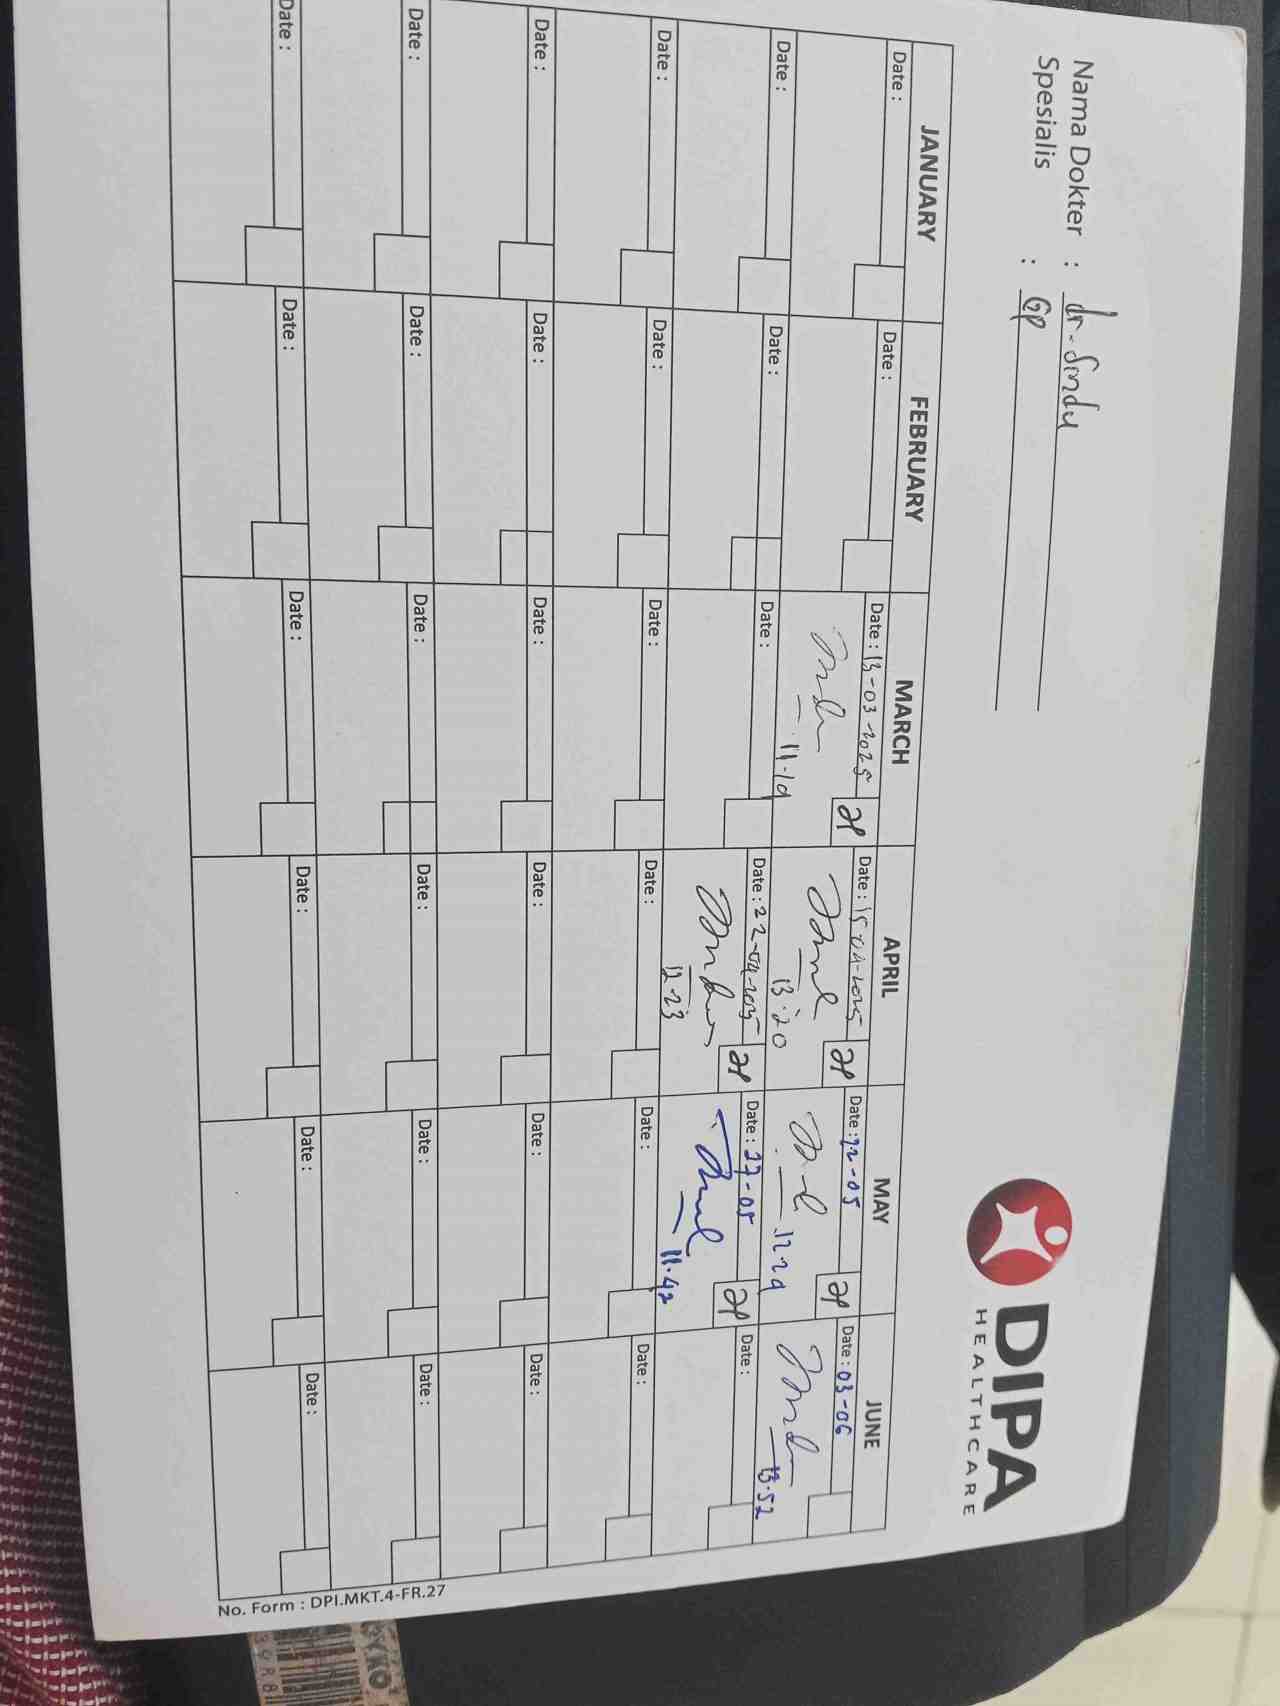 Nama Dokter : dr. Sindu
Spesialis : GP
DIPA
HEALTHCARE
JANUARY FEBRUARY MARCH APRIL MAY JUNE
Date : Date : Date : 13-03-2025 Date : 15-04-2025 Date : 22-05 Date : 03-06
11.19 13.20 12.29 13.52
Date : Date : Date : Date : 22-04-2025 Date : 27-05 Date :
12.23 11.42
Date : Date : Date : Date : Date : Date :
Date : Date : Date : Date : Date : Date :
Date : Date : Date : Date : Date : Date :
Date : Date : Date : Date : Date : Date :
No. Form : DPI.MKT.4-FR.27